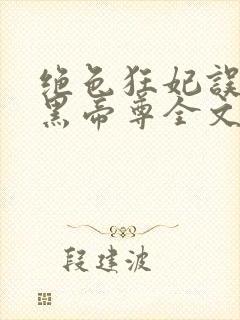 绝色狂妃误
黑帝尊全文
段建波